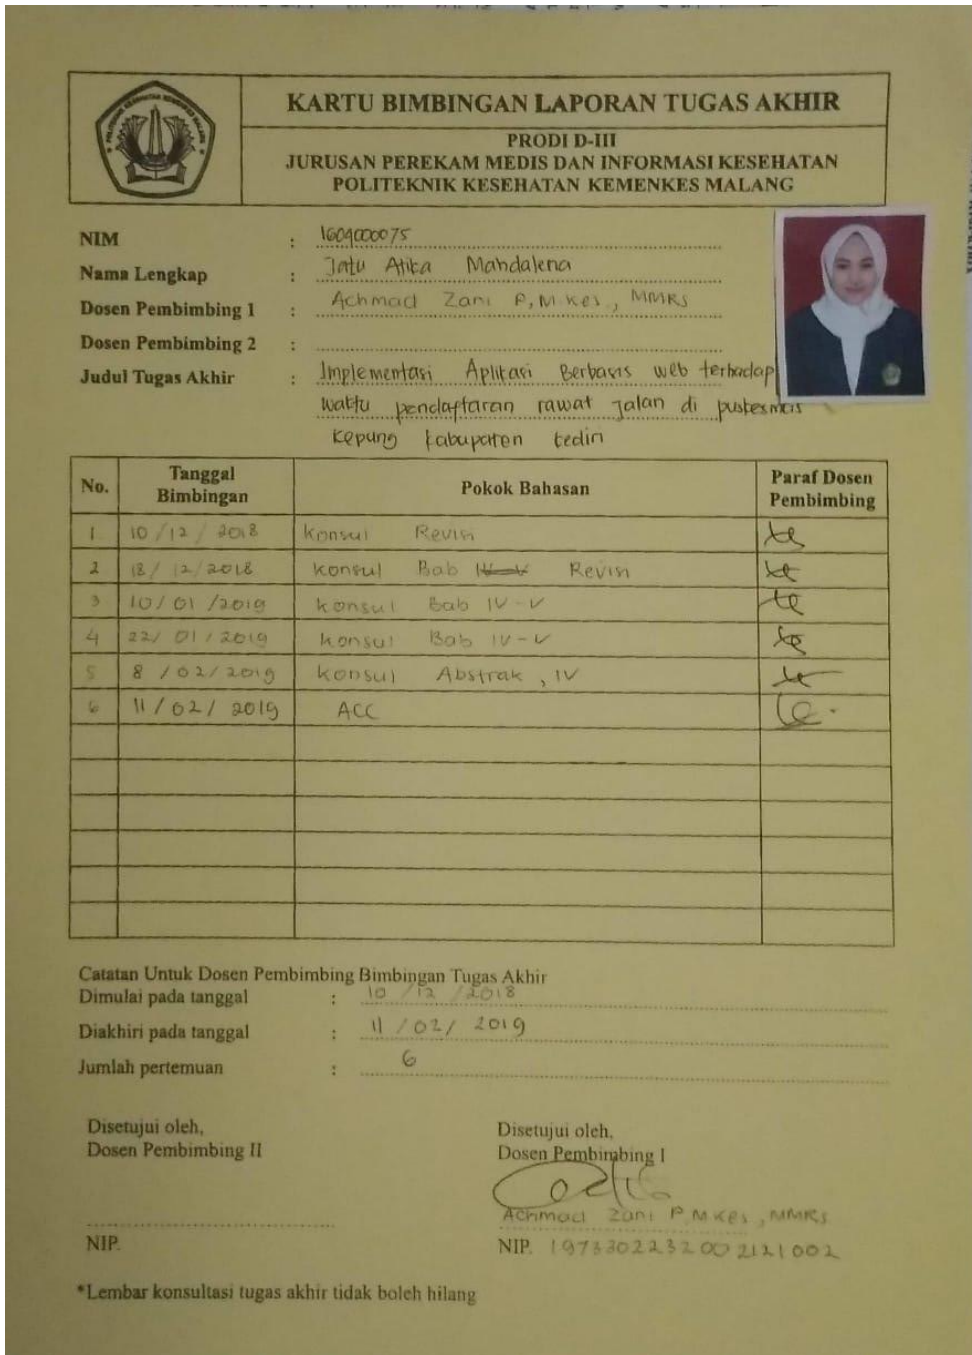 KARTU BIMBINGAN LAPORAN TUGAS AKHIR
PRODI D-III
JURUSAN PEREKAM MEDIS DAN INFORMASI KESEHATAN
POLITEKNIK KESEHATAN KEMENKES MALANG
NIM : 1609000075
Nama Lengkap : Jatu Atika Mahdalena
Dosen Pembimbing 1 : Achmad Zani P, M.Kes., MMRS
Dosen Pembimbing 2 :
Judul Tugas Akhir : Implementasi Aplikasi Berbasis web terhadap
waktu pendaftaran rawat jalan di puskesmas
Kepung kabupaten kediri
No. Tanggal Bimbingan Pokok Bahasan Paraf Dosen Pembimbing
1 10/12/2018 konsul Revisi
2 18/12/2018 konsul Bab Revisi
3 10/01/2019 konsul Bab IV-V
4 22/01/2019 konsul Bab IV-V
5 8/02/2019 konsul Abstrak, IV
6 11/02/2019 ACC
Catatan Untuk Dosen Pembimbing Bimbingan Tugas Akhir
Dimulai pada tanggal : 10/12/2018
Diakhiri pada tanggal : 11/02/2019
Jumlah pertemuan : 6
Disetujui oleh,
Dosen Pembimbing II
NIP.
Disetujui oleh,
Dosen Pembimbing I
Achmad Zani P, M.Kes, MMRS
NIP. 1973302232002121002
*Lembar konsultasi tugas akhir tidak boleh hilang